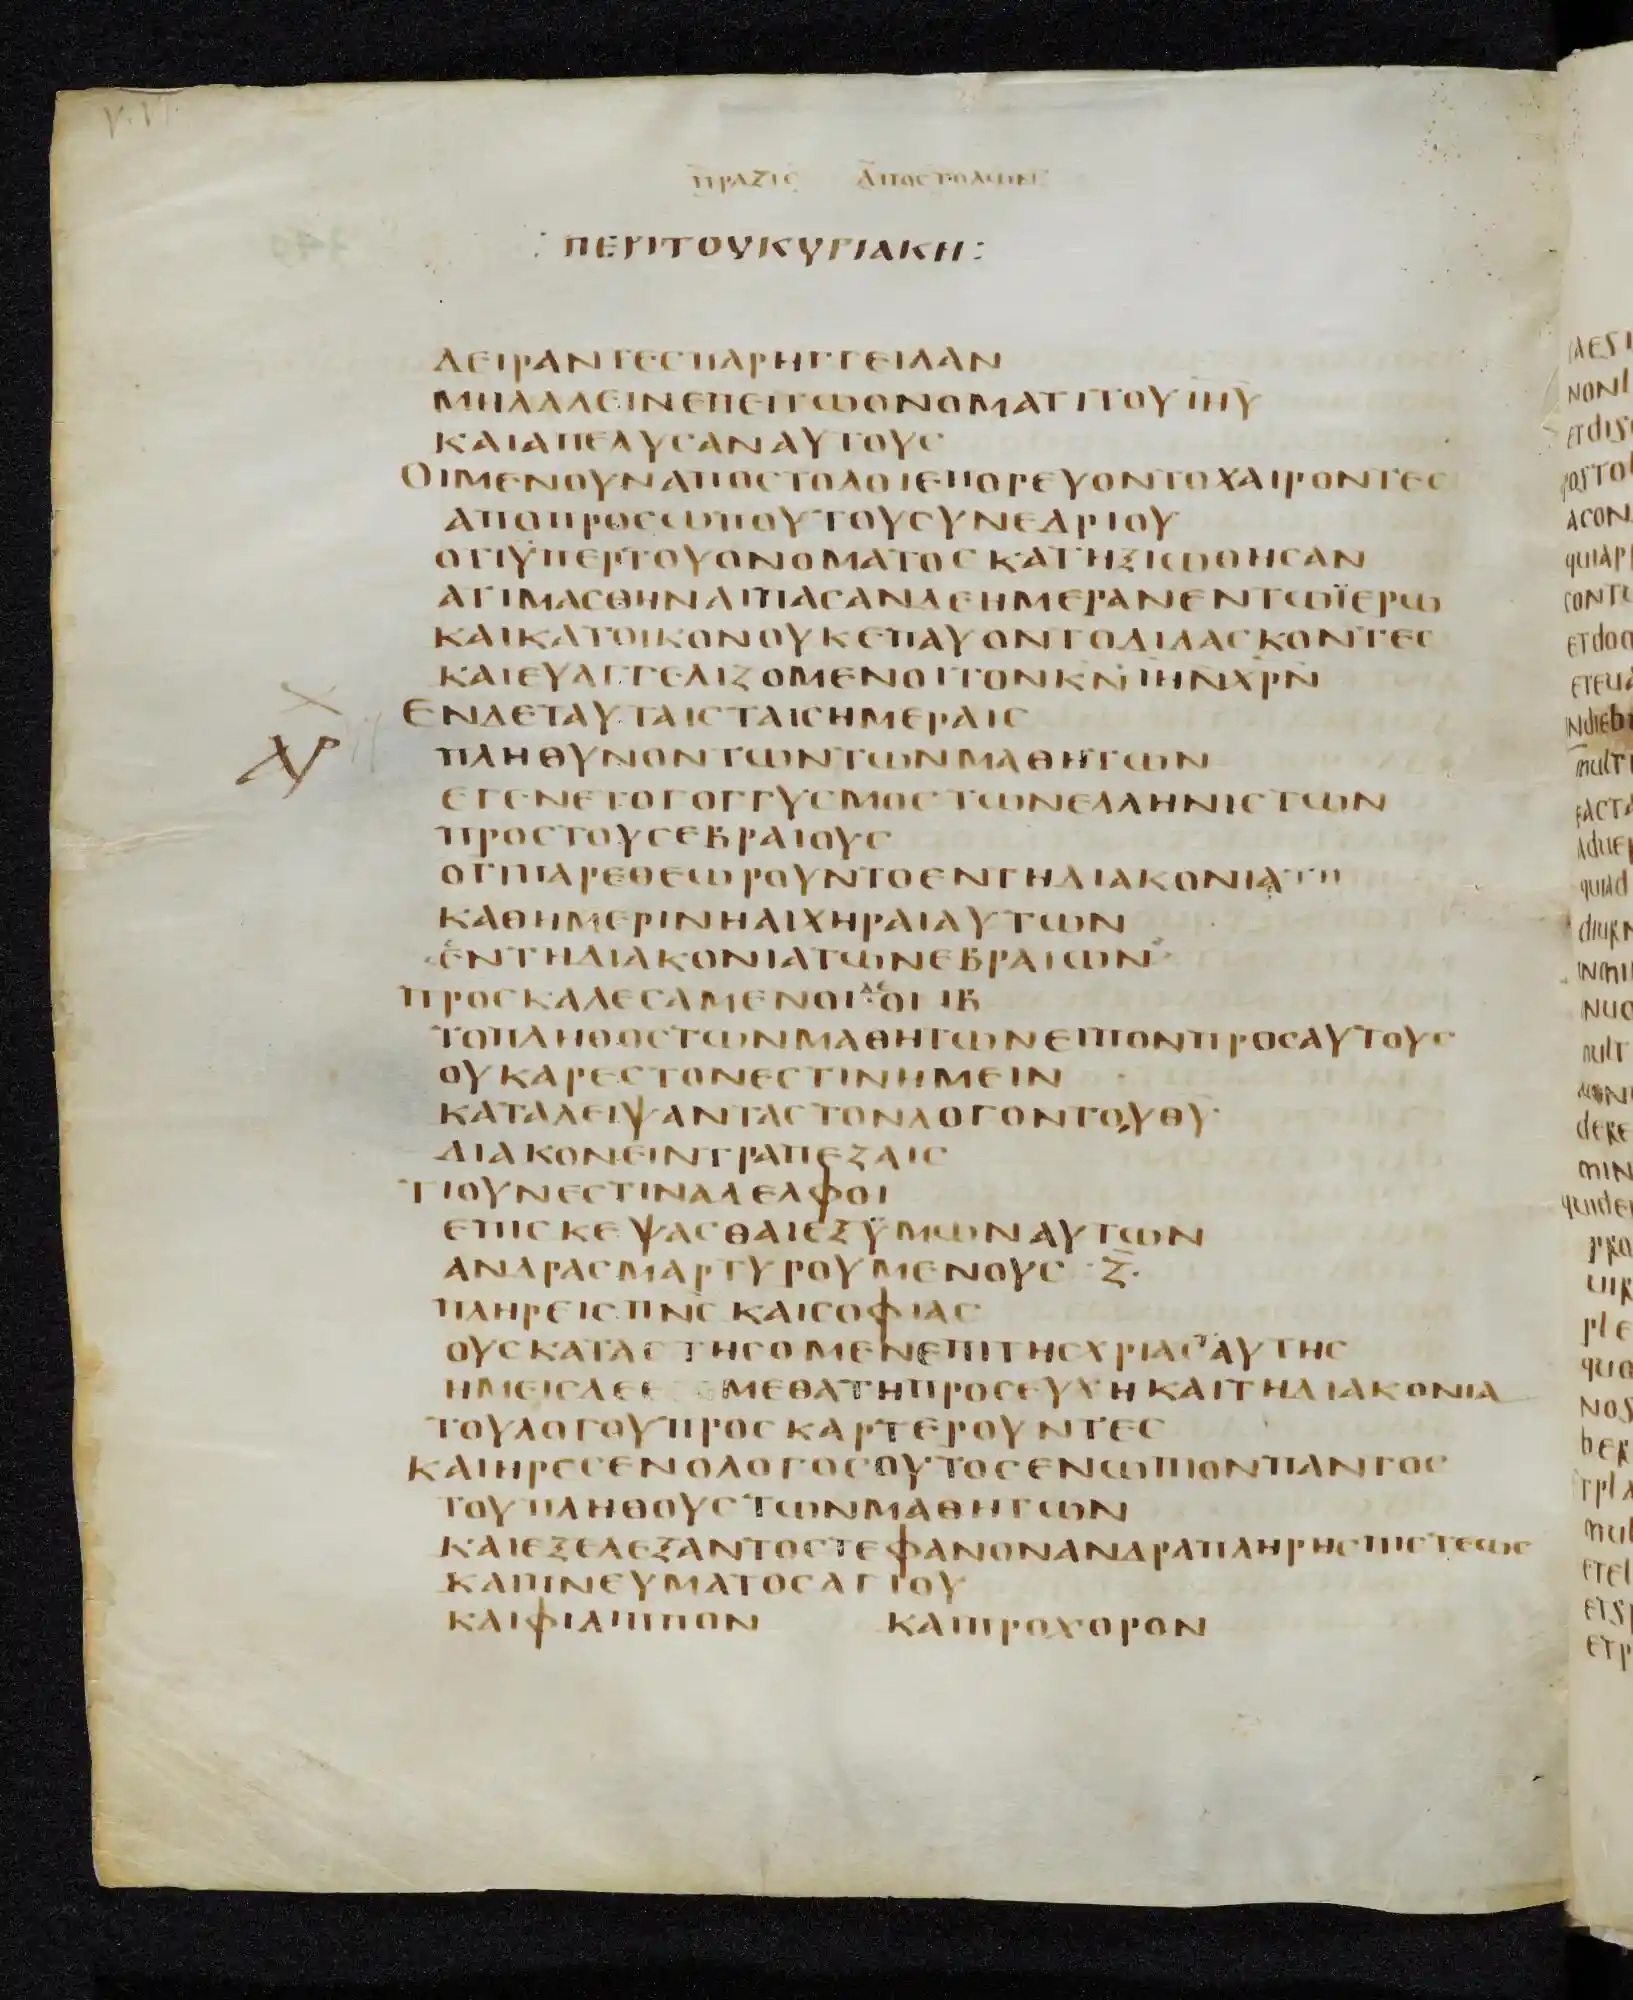 V. VI.
ΠΡΑΞΙΣ ΑΠΟΣΤΟΛΩΝ
: ΠΕΡΙΤΟΥΚΥΡΙΑΚΗ :
ΔΕΙΡΑΝΤΕϹΠΑΡΗΓΓΕΙΛΑΝ
ΜΗΛΑΛΕΙΝΕΠΕΙΤΩΟΝΟΜΑΤΙΤΟΥΙΗΥ
ΚΑΙΑΠΕΛΥϹΑΝΑΥΤΟΥϹ
ΟΙΜΕΝΟΥΝΑΠΟϹΤΟΛΟΙΕΠΟΡΕΥΟΝΤΟΧΑΙΡΟΝΤΕϹ
ΑΠΟΠΡΟϹΩΠΟΥΤΟΥϹΥΝΕΔΡΙΟΥ
ΟΤΙΫΠΕΡΤΟΥΟΝΟΜΑΤΟϹΚΑΤΗΞΙΩΘΗϹΑΝ
ΑΤΙΜΑϹΘΗΝΑΙΠΑϹΑΝΔΕΗΜΕΡΑΝΕΝΤΩΪΕΡΩ
ΚΑΙΚΑΤΟΙΚΟΝΟΥΚΕΠΑΥΟΝΤΟΔΙΔΑϹΚΟΝΤΕϹ
ΚΑΙΕΥΑΓΓΕΛΙΖΟΜΕΝΟΙΤΟΝΚΝΙΗΝΧΡΝ
ΕΝΔΕΤΑΥΤΑΙϹΤΑΙϹΗΜΕΡΑΙϹ
ΠΛΗΘΥΝΟΝΤΩΝΤΩΝΜΑΘΗΤΩΝ
ΕΓΕΝΕΤΟΓΟΓΓΥϹΜΟϹΤΩΝΕΛΛΗΝΙϹΤΩΝ
ΠΡΟϹΤΟΥϹΕΒΡΑΙΟΥϹ
ΟΤΙΠΑΡΕΘΕΩΡΟΥΝΤΟΕΝΤΗΔΙΑΚΟΝΙΑ
ΚΑΘΗΜΕΡΙΝΗΑΙΧΗΡΑΙΑΥΤΩΝ
ΕΝΤΗΔΙΑΚΟΝΙΑΤΩΝΕΒΡΑΙΩΝ
ΠΡΟϹΚΑΛΕϹΑΜΕΝΟΙΔΕΟΙΙΒ
ΤΟΠΛΗΘΟϹΤΩΝΜΑΘΗΤΩΝΕΙΠΟΝΠΡΟϹΑΥΤΟΥϹ
ΟΥΚΑΡΕϹΤΟΝΕϹΤΙΝΗΜΕΙΝ
ΚΑΤΑΛΕΙΨΑΝΤΑϹΤΟΝΛΟΓΟΝΤΟΥΘΥ
ΔΙΑΚΟΝΕΙΝΤΡΑΠΕΖΑΙϹ
ΤΙΟΥΝΕϹΤΙΝΑΔΕΛΦΟΙ
ΕΠΙϹΚΕΨΑϹΘΑΙΕΞΫΜΩΝΑΥΤΩΝ
ΑΝΔΡΑϹΜΑΡΤΥΡΟΥΜΕΝΟΥϹ ·Ζ·
ΠΛΗΡΕΙϹΠΝϹΚΑΙϹΟΦΙΑϹ
ΟΥϹΚΑΤΑϹΤΗϹΟΜΕΝΕΠΙΤΗϹΧΡΙΑϹΑΥΤΗϹ
ΗΜΕΙϹΔΕΕ ΜΕΘΑΤΗΠΡΟϹΕΥΧΗΚΑΙΤΗΔΙΑΚΟΝΙΑ
ΤΟΥΛΟΓΟΥΠΡΟϹΚΑΡΤΕΡΟΥΝΤΕϹ
ΚΑΙΗΡΕϹΕΝΟΛΟΓΟϹΟΥΤΟϹΕΝΩΠΙΟΝΠΑΝΤΟϹ
ΤΟΥΠΛΗΘΟΥϹΤΩΝΜΑΘΗΤΩΝ
ΚΑΙΕΞΕΛΕΞΑΝΤΟϹΤΕΦΑΝΟΝΑΝΔΡΑΠΛΗΡΗϹΠΙϹΤΕΩϹ
ΚΑΙΠΝΕΥΜΑΤΟϹΑΓΙΟΥ
ΚΑΙΦΙΛΙΠΠΟΝ ΚΑΙΠΡΟΧΟΡΟΝ